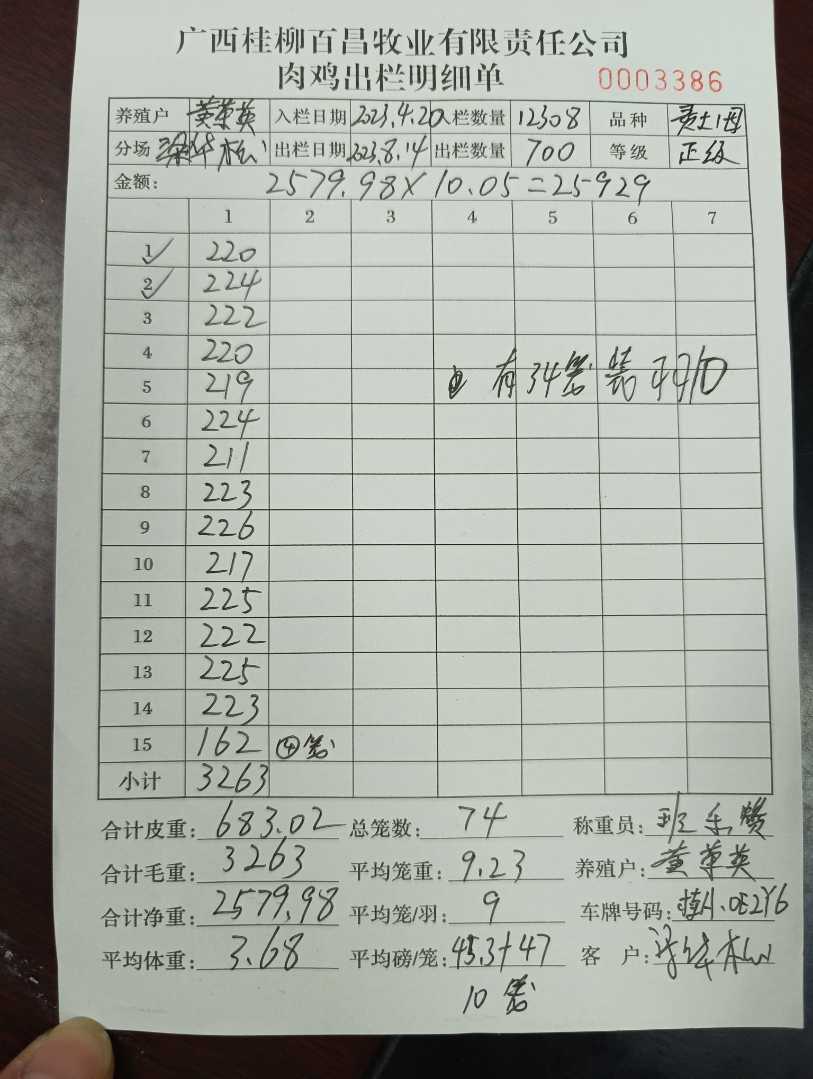 广西桂柳百昌牧业有限责任公司
肉鸡出栏明细单 0003386
养殖户 黄革英 入栏日期 2023.4.20 入栏数量 12308 品种
分场 出栏日期 2023.8.14 出栏数量 700 等级 正级
金额: 2579.98×10.05=25929
1 2 3 4 5 6 7
1 220
2 224
3 222
4 220
有34笼装羽10
5 219
6 224
7 211
8 223
9 226
10 217
11 225
12 222
13 225
14 223
15 162 ④笼
小计 3263
合计皮重: 683.02 总笼数: 74 称重员:
合计毛重: 3263 平均笼重: 9.23 养殖户: 黄革英
合计净重: 2579.98 平均笼/羽: 9 车牌号码: 桂A.0E2Y6
平均体重: 3.68 平均磅/笼: 45.3+47 客户:
10笼